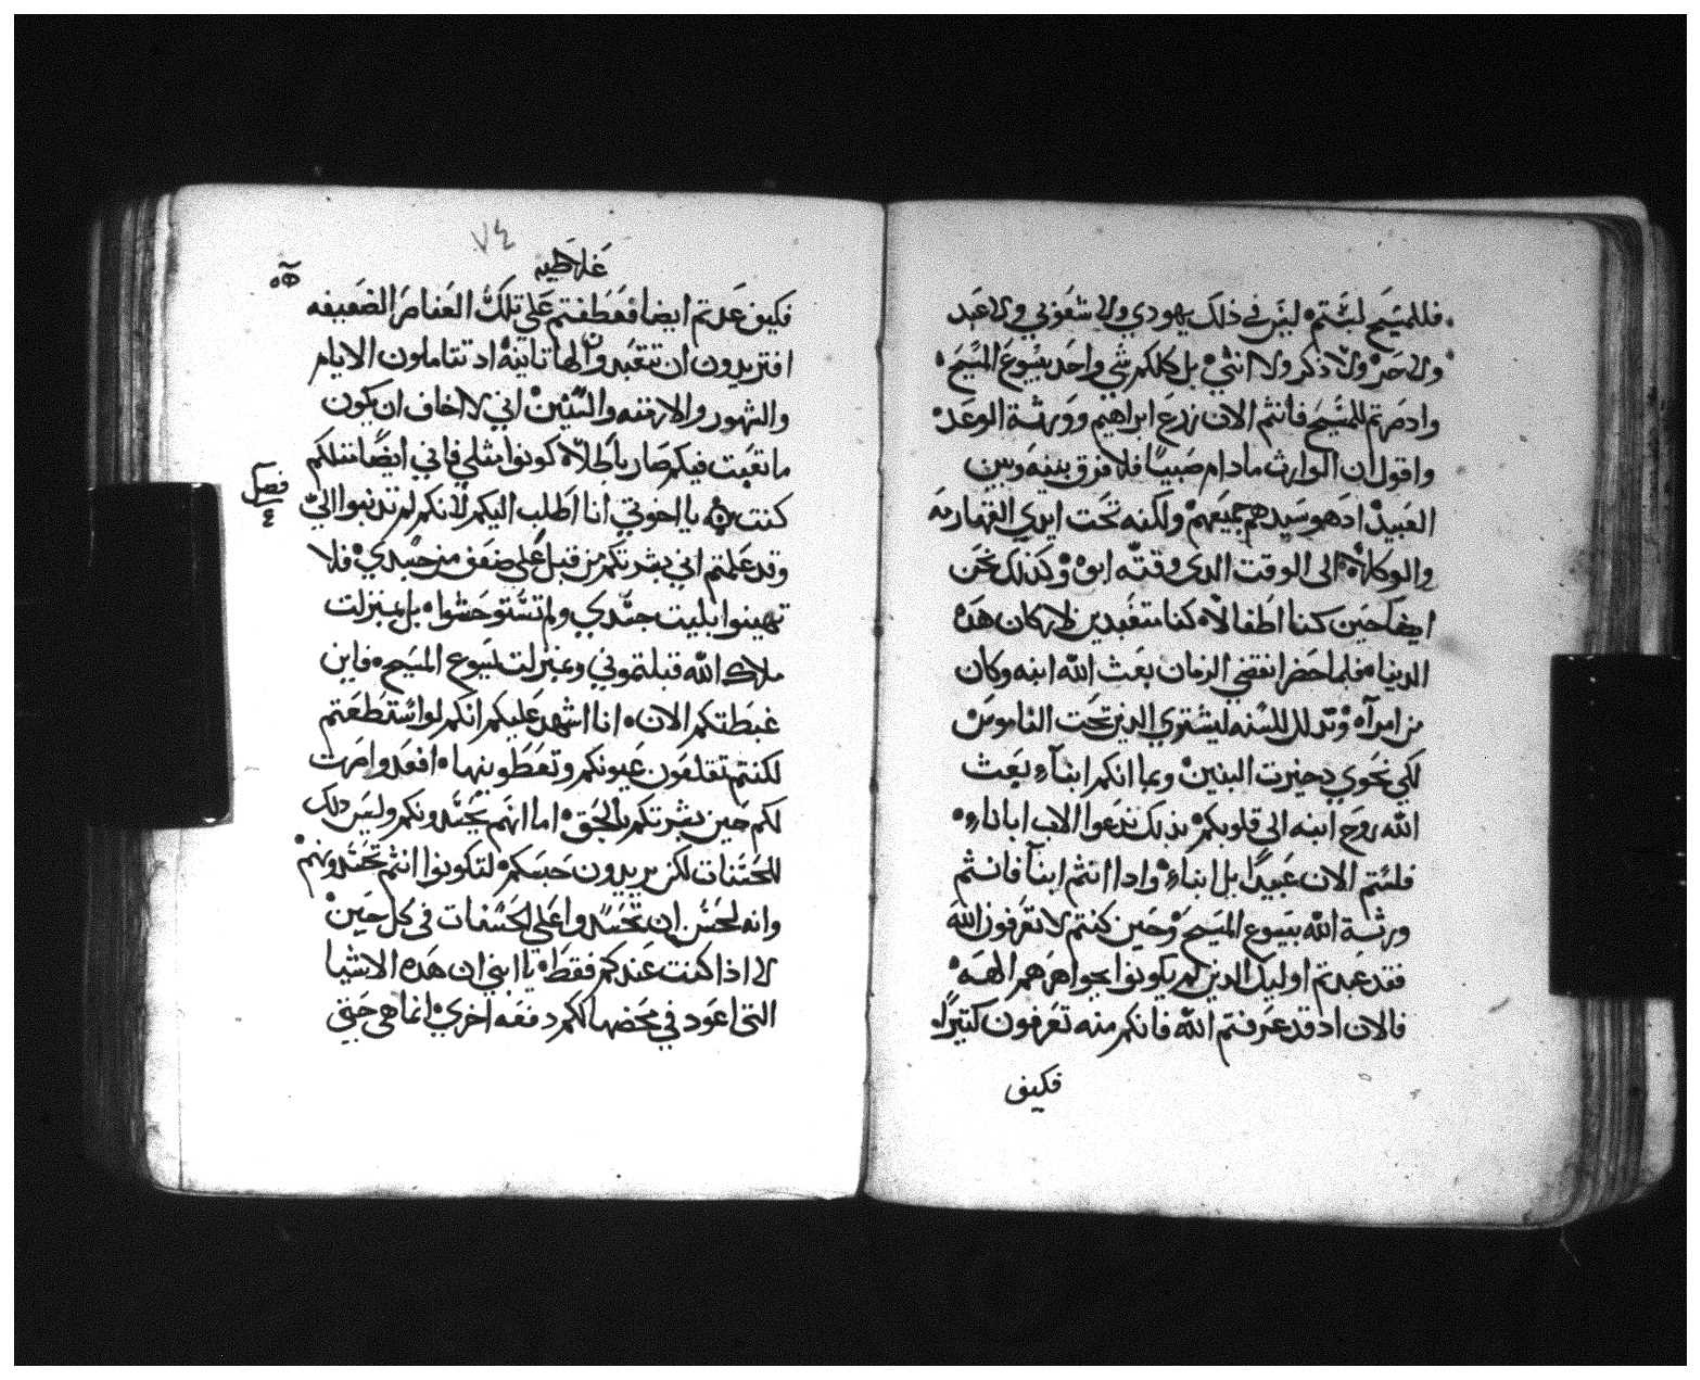 فللمسَيح لبسَتم ليسَ في ذلك يهودي ولا شعَوبي ولا عَبد
ولا حَر ولا ذكر ولا انثي بل كلكم شي واحَد بيسَوع المسَيح
وادصَرتم للمسَيح فانتم الان زرعَ ابراهيم وورثة الوعَد
واقول ان الوارث مادام صَبيًا فلا فرق بينه وبين
العَبيد ادهو سَيدهم جميعَهم ولكنه تحَت ايدي القهارمَه
والوكلاه الى الوقت الدى وقته ابوه وكذلك نحَن
ايضا حَين كنا اطَفالاه كنا متعَبدين لاركان هَده
الدنياه فلما حَضر انقضي الزمان بعَث الله ابنه وكان
من امراه وتدلل للسنه ليشتري الدين تحَت الناموسَ
لكي نحَوي دخيرت البنين وبما انكم ابنآء بعَث
الله روح ابنه الى قلوبكم بذلك ندعَوا الاب ابانا
فلستم الان عَبيدًا بل ابناء وادا انتم ابنآ فانتم
ورثة الله بيسَوع المسَيحَ وحَين كنتم لا تعَرفون الله
فقد عَبدتم اوليك الدين لم يكونوا بجواهرهم الهه
فالان ادقد عَرفتم الله فانكم منه تعَرفون كتيرًاه
فكيف
٧٤
غلاطيه
فكيف عَدتم ايضا فعَطَفتم عَلي تلك العَناصَر الضعَيفه
افتريدون ان تتعَبدوا لها تانية اد تتاملون الايام
والشهور والازمنه والسَنين اني لا اخاف ان يكون
ما تعَبت فيكم صَار باطَلاه كونوا مثلي فاني ايضًا مثلكم
فصَل
٤
كنت يا اخوتي انا اطَلب اليكم لانكم لم تدنبوا اليّ
وقد عَلمتم اني بشرتكم من قبل عَلي ضعَف من جسَدي فلا
تهينوا بليت جسَدي ولم تسَتوحَشواه بل بمنزلت
ملاك الله قبلتموني وبمنزلت يسَوع المسَيح فاين
غبطَتكم الان انا اشهد عَليكم انكم لو اسَتطَعَتم
لكنتم تقلعَون عَيونكم وتعَطَوينهاه افعَدوا صَرت
لكم حَين بشرتكم بالحَق اما انهم يحَسَدونكم وليسَ دلك
للحَسَنات لكن يريدون حَبسَكم لتكونوا انتم تحَسَدونهم
وانه لحَسَن ان تحَسَدوا عَلي الحَسَنات في كل حَين
لا اذا كنت عَندكم فقطَ يا ابني ان هَده الاشيا
التى اعَود في مخَضها لكم دفعَه اخري انما هي حَتي